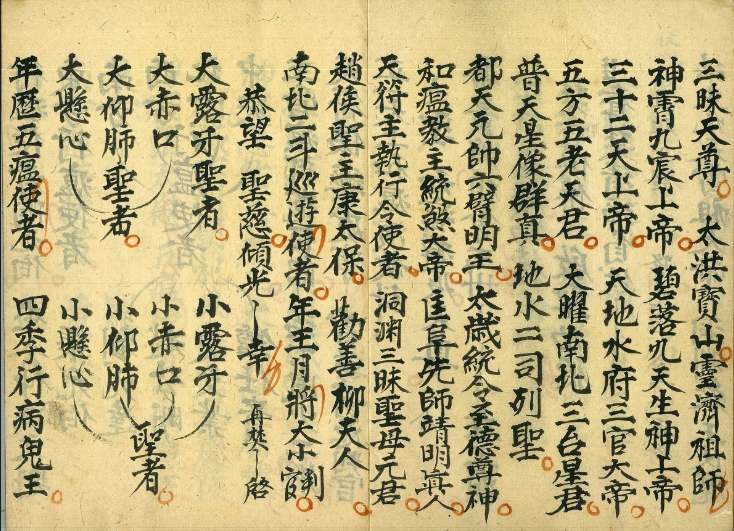 三昧天尊　太洪寶山靈濟祖師
神霄九宸上帝　碧落九天生神上帝
三十二天上帝　天地水府三官大帝
五方五老天君　大曜南北三台星君
普天星像群真　地水二司列聖
都天元帥六臂明王　太歲統令至德尊神
和瘟教主統煞大帝　匡阜先師靖明真人
天符主執行令使者　洞渊三昧聖母元君
趙侯聖主康太保　勸善柳夫人
南北二斗巡遊使者　年王月將大小官判
恭望　聖慈傾光　幸　再焚　啓
大露牙聖者　小露牙
大赤口　小赤口
大仰肺聖者　小仰肺　聖者
大懸心　小懸心
年歷五瘟使者　四季行病鬼王